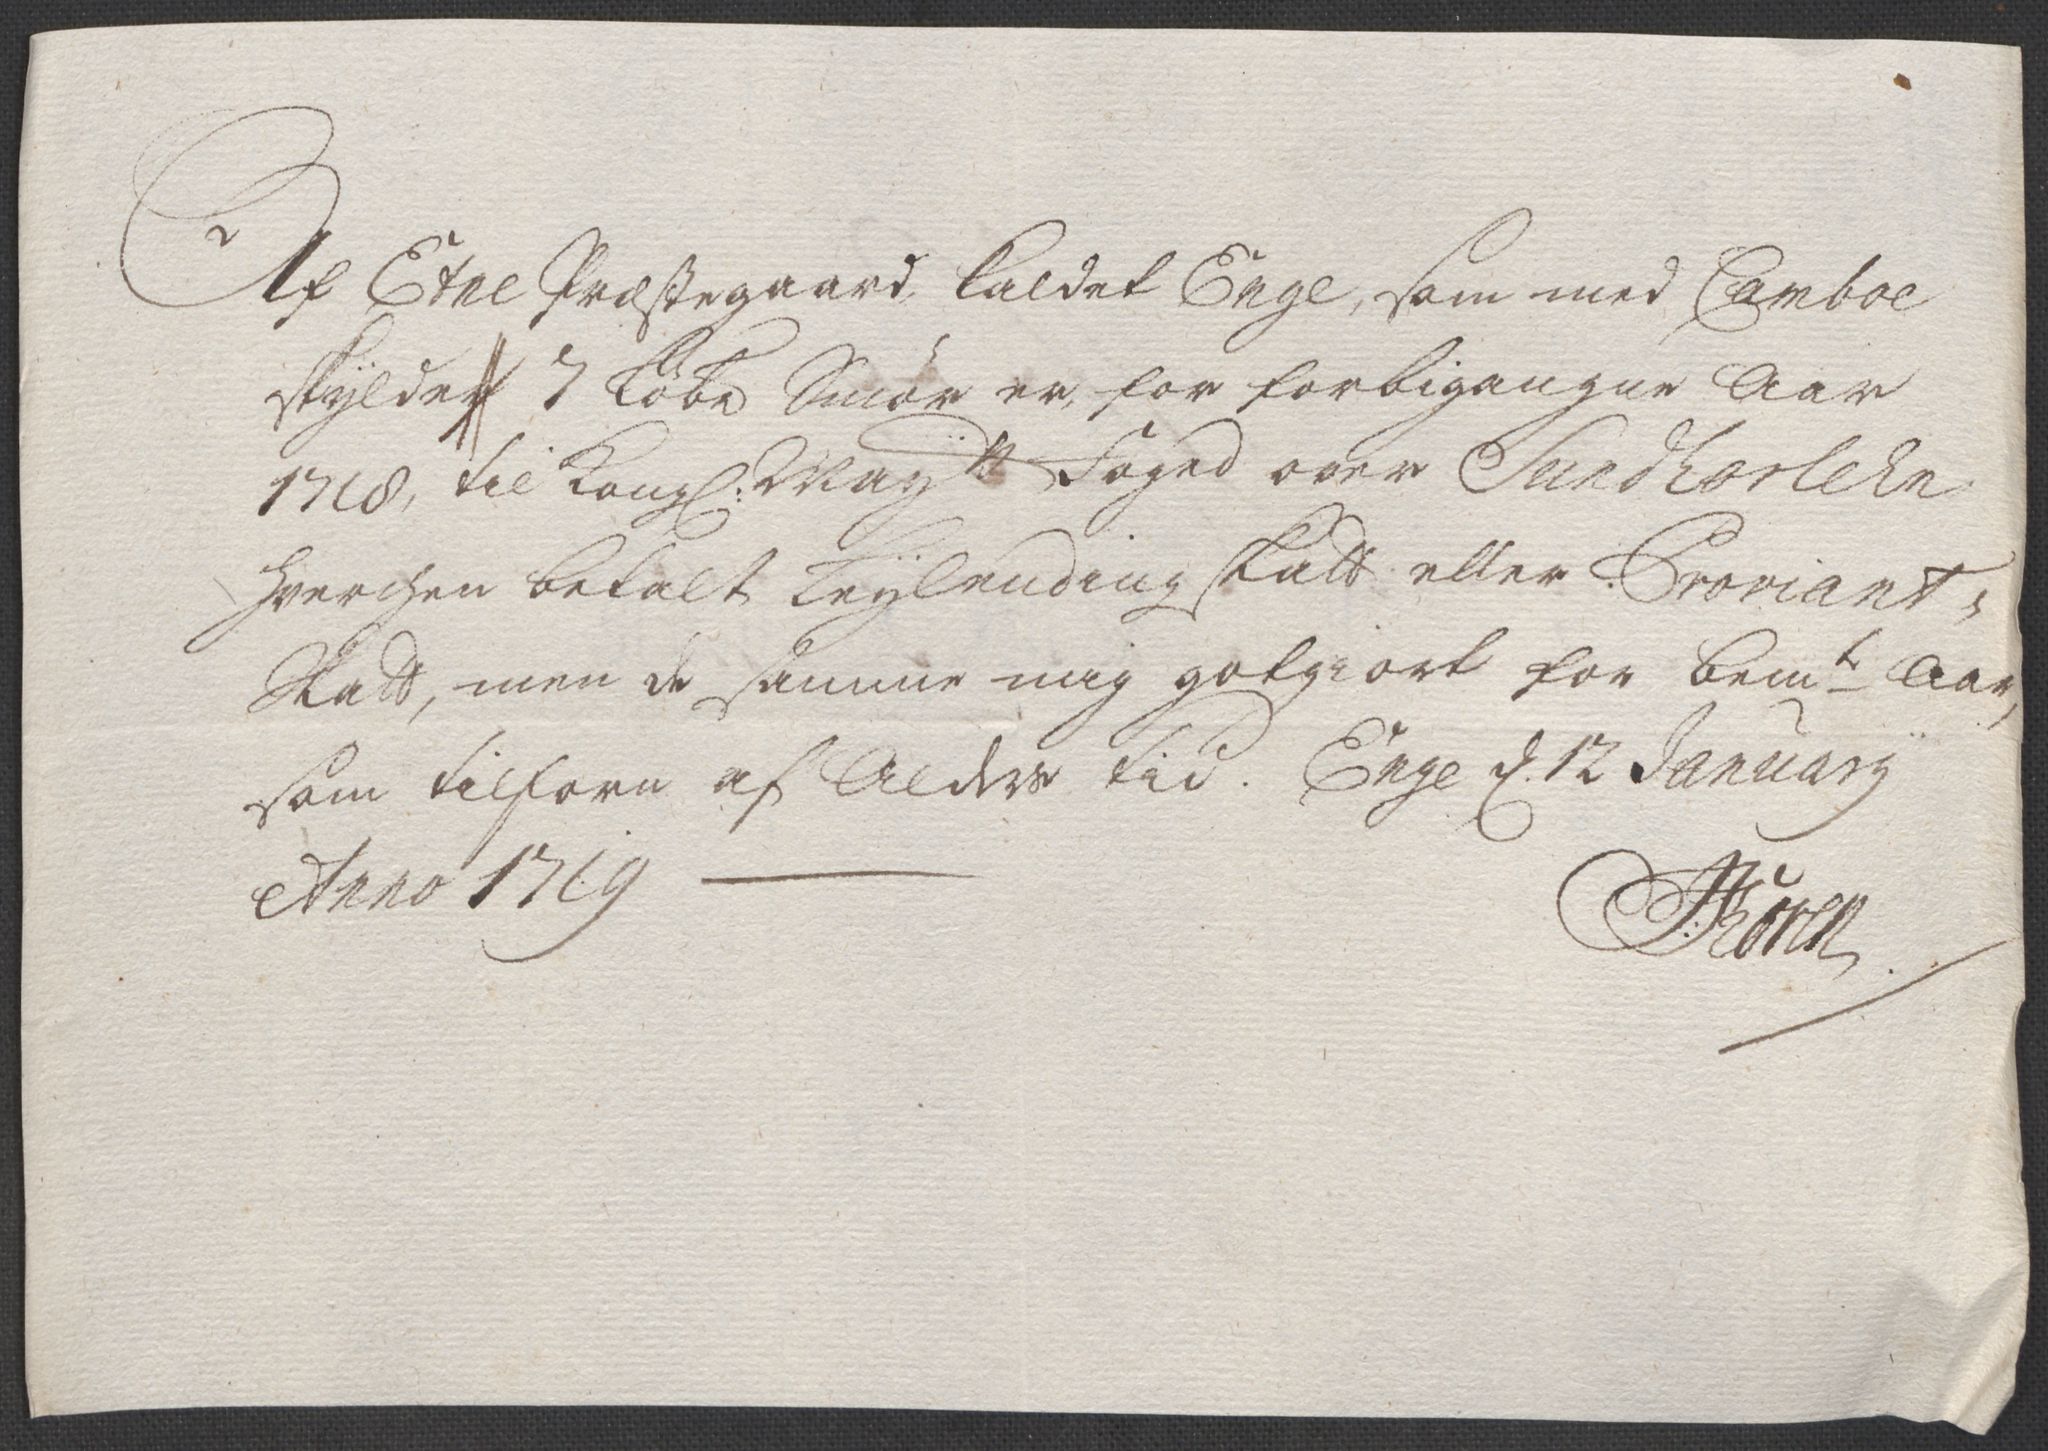 Af Etne Præstegaard, kaldet Enge, som med Camboe
skylder 7 Løbe Smør er, for forbigangne Aar
1718, til Kongl: Mayts Foged over Sundhorlehn
hverchen betalt Leÿlending skatt eller Proviant,,
Skatt, men de samme mig gotgiort for bemt Aar,
som tilforn af Alders tid. Enge d. 12 Januarÿ
Anno 1719